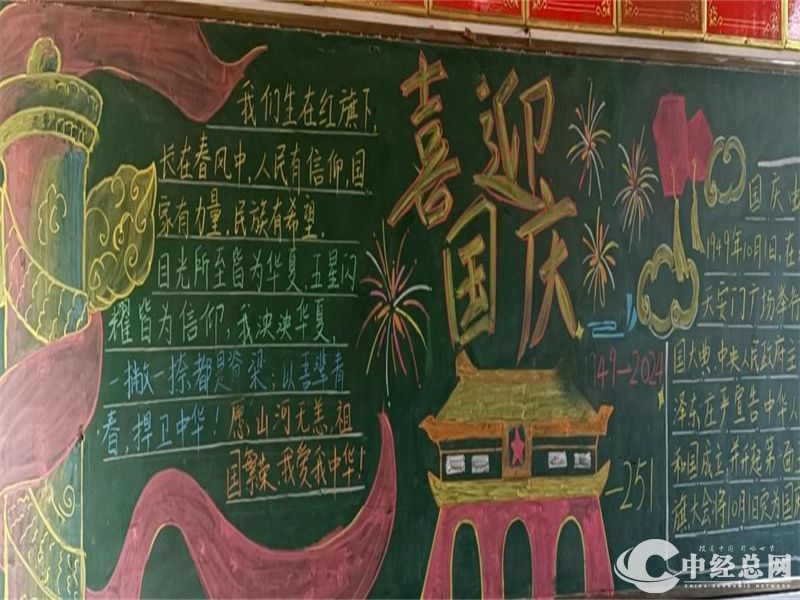 我们生在红旗下,
长在春风中,人民有信仰,国
家有力量,民族有希望。
目光所至皆为华夏,五星闪
耀皆为信仰,我泱泱华夏,
一撇一捺都是脊梁;以吾辈青
春,捍卫中华!愿,山河无恙,祖
国繁荣,我爱我中华!
喜迎
国庆
1949-2024
-251
国庆
1949年10月1日,在
天安门广场举行
国大典,中央人民政府主
泽东庄严宣告中华人
和国成立,并升起第一面
旗,大会将10月1日定为国庆
中经总网
CHINA ECONOMIC NETWORK